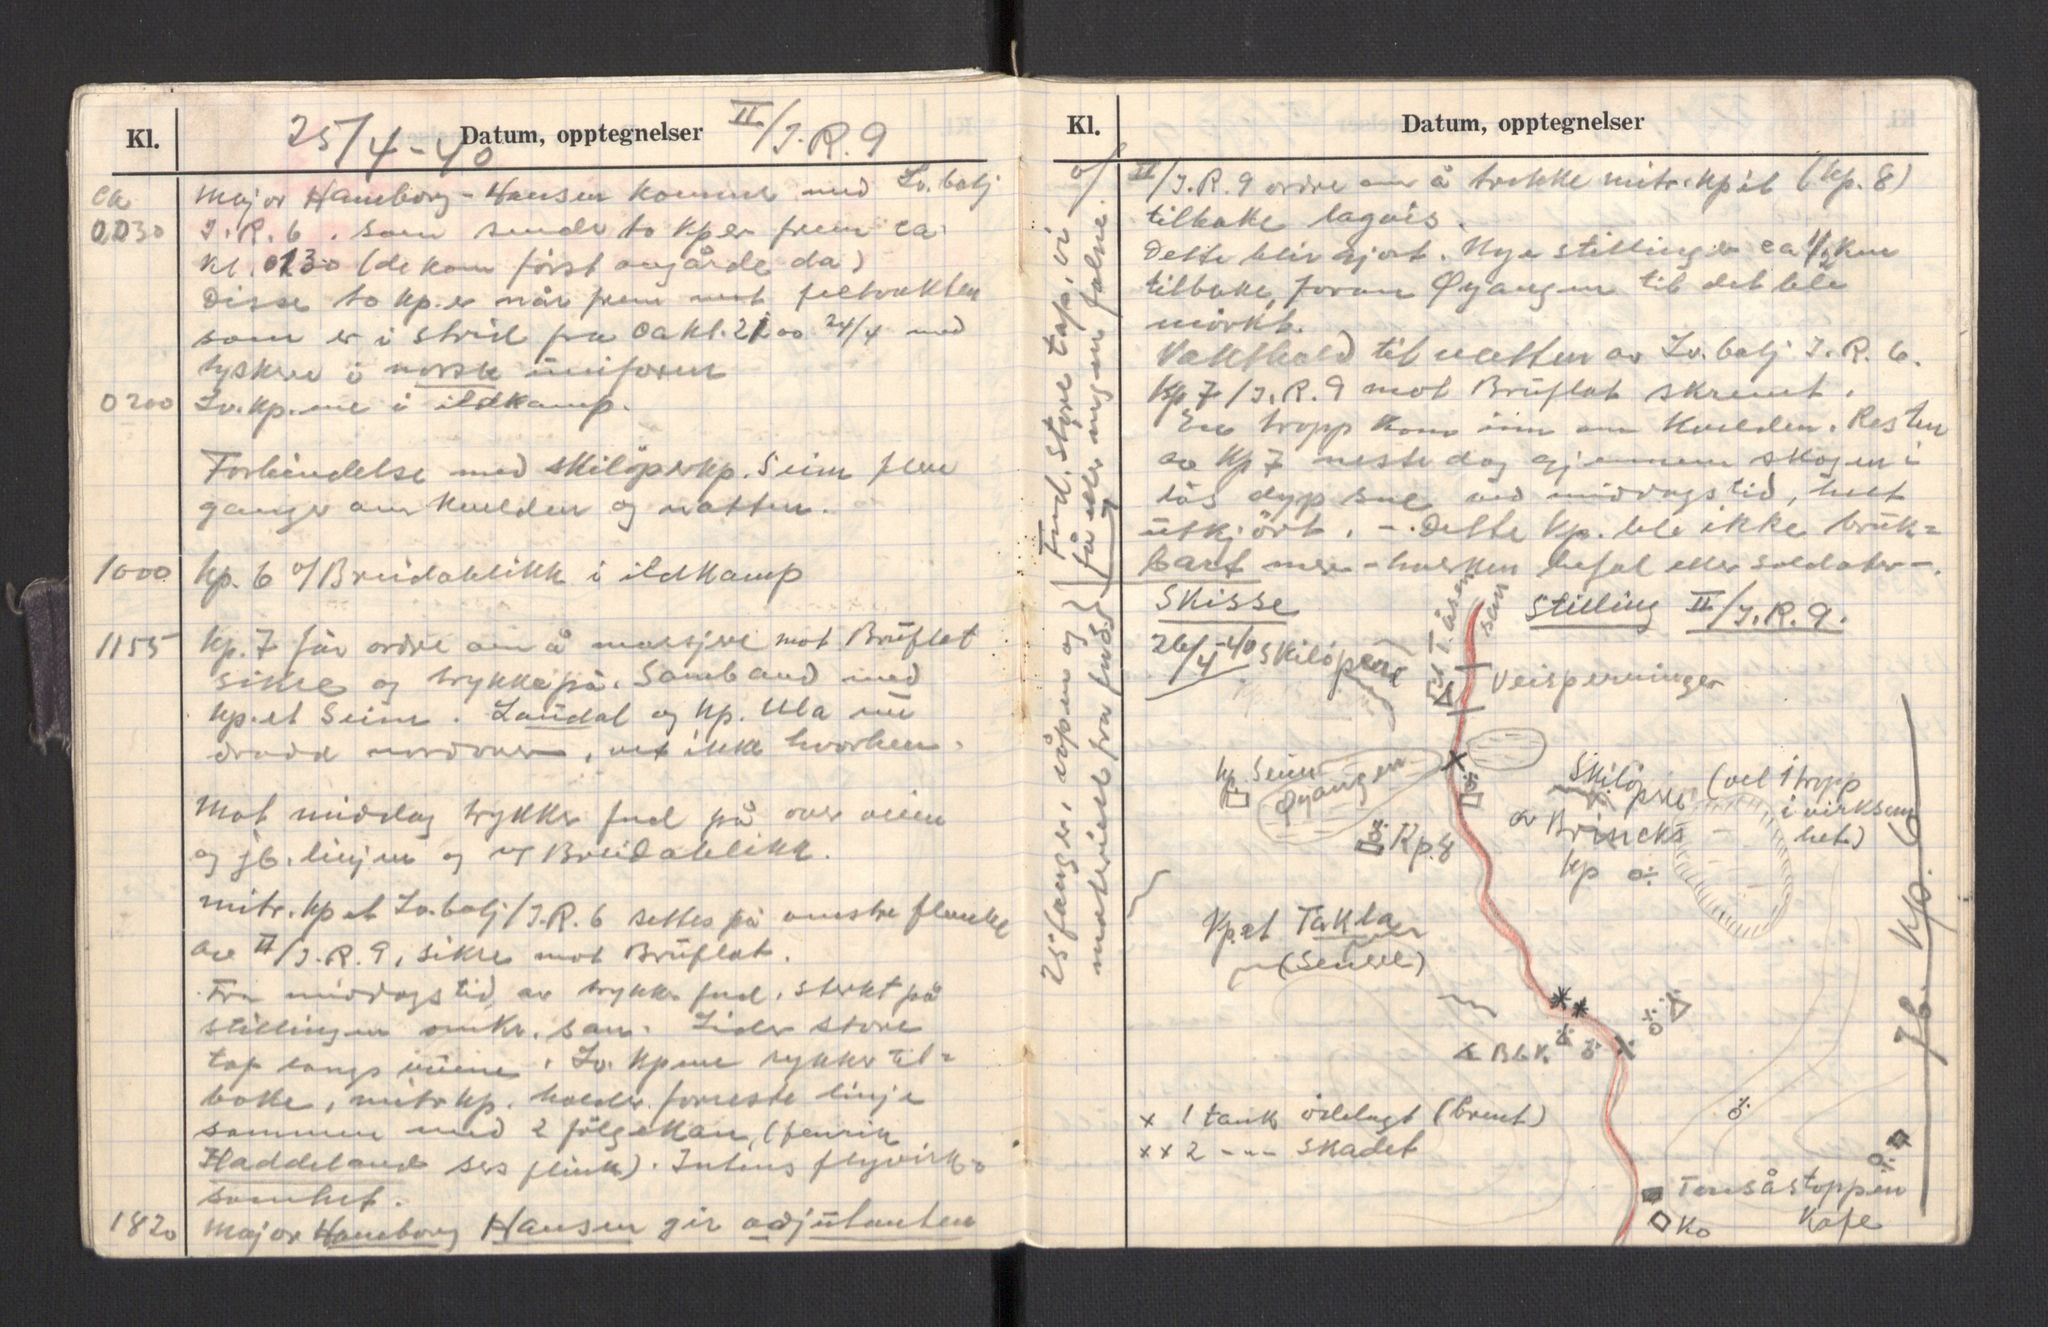 Kl. Datum, opptegnelser
25/4-40 II/J.R.9
ca Major Haneborg-Hansen kommer med Lv.batj
0030 J.R.6. som sender to kper frem ca
Kl. 0130 (de kom først avgårde da)
Disse to kp.er når frem mot feltvakten
som er i strid fra ca kl. 2100 24/4 med
tyskere i norsk uniform
0200 Lv.kp.ene i ildkamp.
Forbindelse med skilöperkp. Seim flere
ganger om kvelden og natten.
1000 Kp. 6 o/Breidablikk i ildkamp
1155 Kp. 7 får ordre om å marsjere mot Brúflat
sikre og trykke på. Samband med
kp.et Seim. Laúdal og kp. Ula er
dradd nordover, vet ikke hvorhen.
Mot middag trykker fnd på over veien
og jb. linjen og v/ Breidablikk.
Mitr.kp et Lv.batj/J.R.6 settes på venstre flanke
av II/J.R.9, sikre mot Brúflat.
Fra middagstid av trykker fnd. sterkt på
stillingen omkr. san. Lider store
tap langs veiene. Lv. kpene rykker til=
bake, mitr kp. holder forreste linje
sammen med 2 fölgekan, (fenrik
Haddeland ses flink). Intens flyvirk=
somhet.
1820 Major Haneborg Hansen gir adjútanten
25 fanger, våpen og materiell fra fnd.
Fnd. store tap, vi få eller ingen falne.
Kl. Datum, opptegnelser
II/J.R.9 ordre om å trekke mitr.kp.et (kp.8)
tilbake lagvis.
Dette blir gjort. Nye stillinger ca 1/2 km
tilbake, foran Øyangen til det ble
mörkt.
Vakthold til natten av Lv.batj J.R.6.
Kp 7/J.R.9 mot Brúflat skremt.
En tropp kom inn om kvelden. Resten
av kp 7 neste dag gjennem skogen i
lös dyp sne ved middagstid, helt
útkjört. - Dette kp. ble ikke brúk=
bart mer - hverken befal eller soldater -.
Skisse
26/4-40
Stilling II/J.R.9.
T.åsen
san
Skilöpere
Veisperringer
kp. Seim
Øyangen
Kp. 8
Skilöpere
av Brincks
kp
(vel 1 tropp
i virksom
het)
Kp.et Takla
Bl.k.
x 1 tank ödelagt (brent)
xx 2 --- skadet
Tonsåstoppen
Kafe
Ko
Jb. Kp. 6